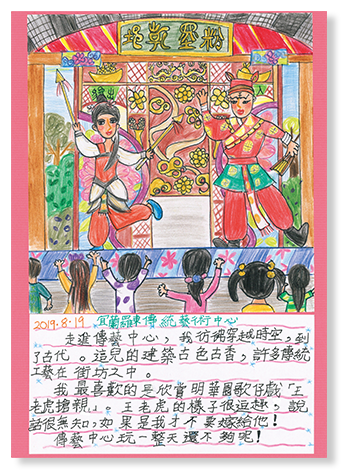 墨粉
出
入
2019.8.19 宜蘭羅東傳統藝術中心
走進傳藝中心，我彷彿穿越時空，到
了古代。這兒的建築古色古香，許多傳統
工藝在街坊之中。
我最喜歡的是欣賞明華園歌仔戲「王
老虎搶親」。王老虎的樣子很逗趣，說
話很無知，如果是我才不要嫁給他！
傳藝中心玩一整天還不夠呢！